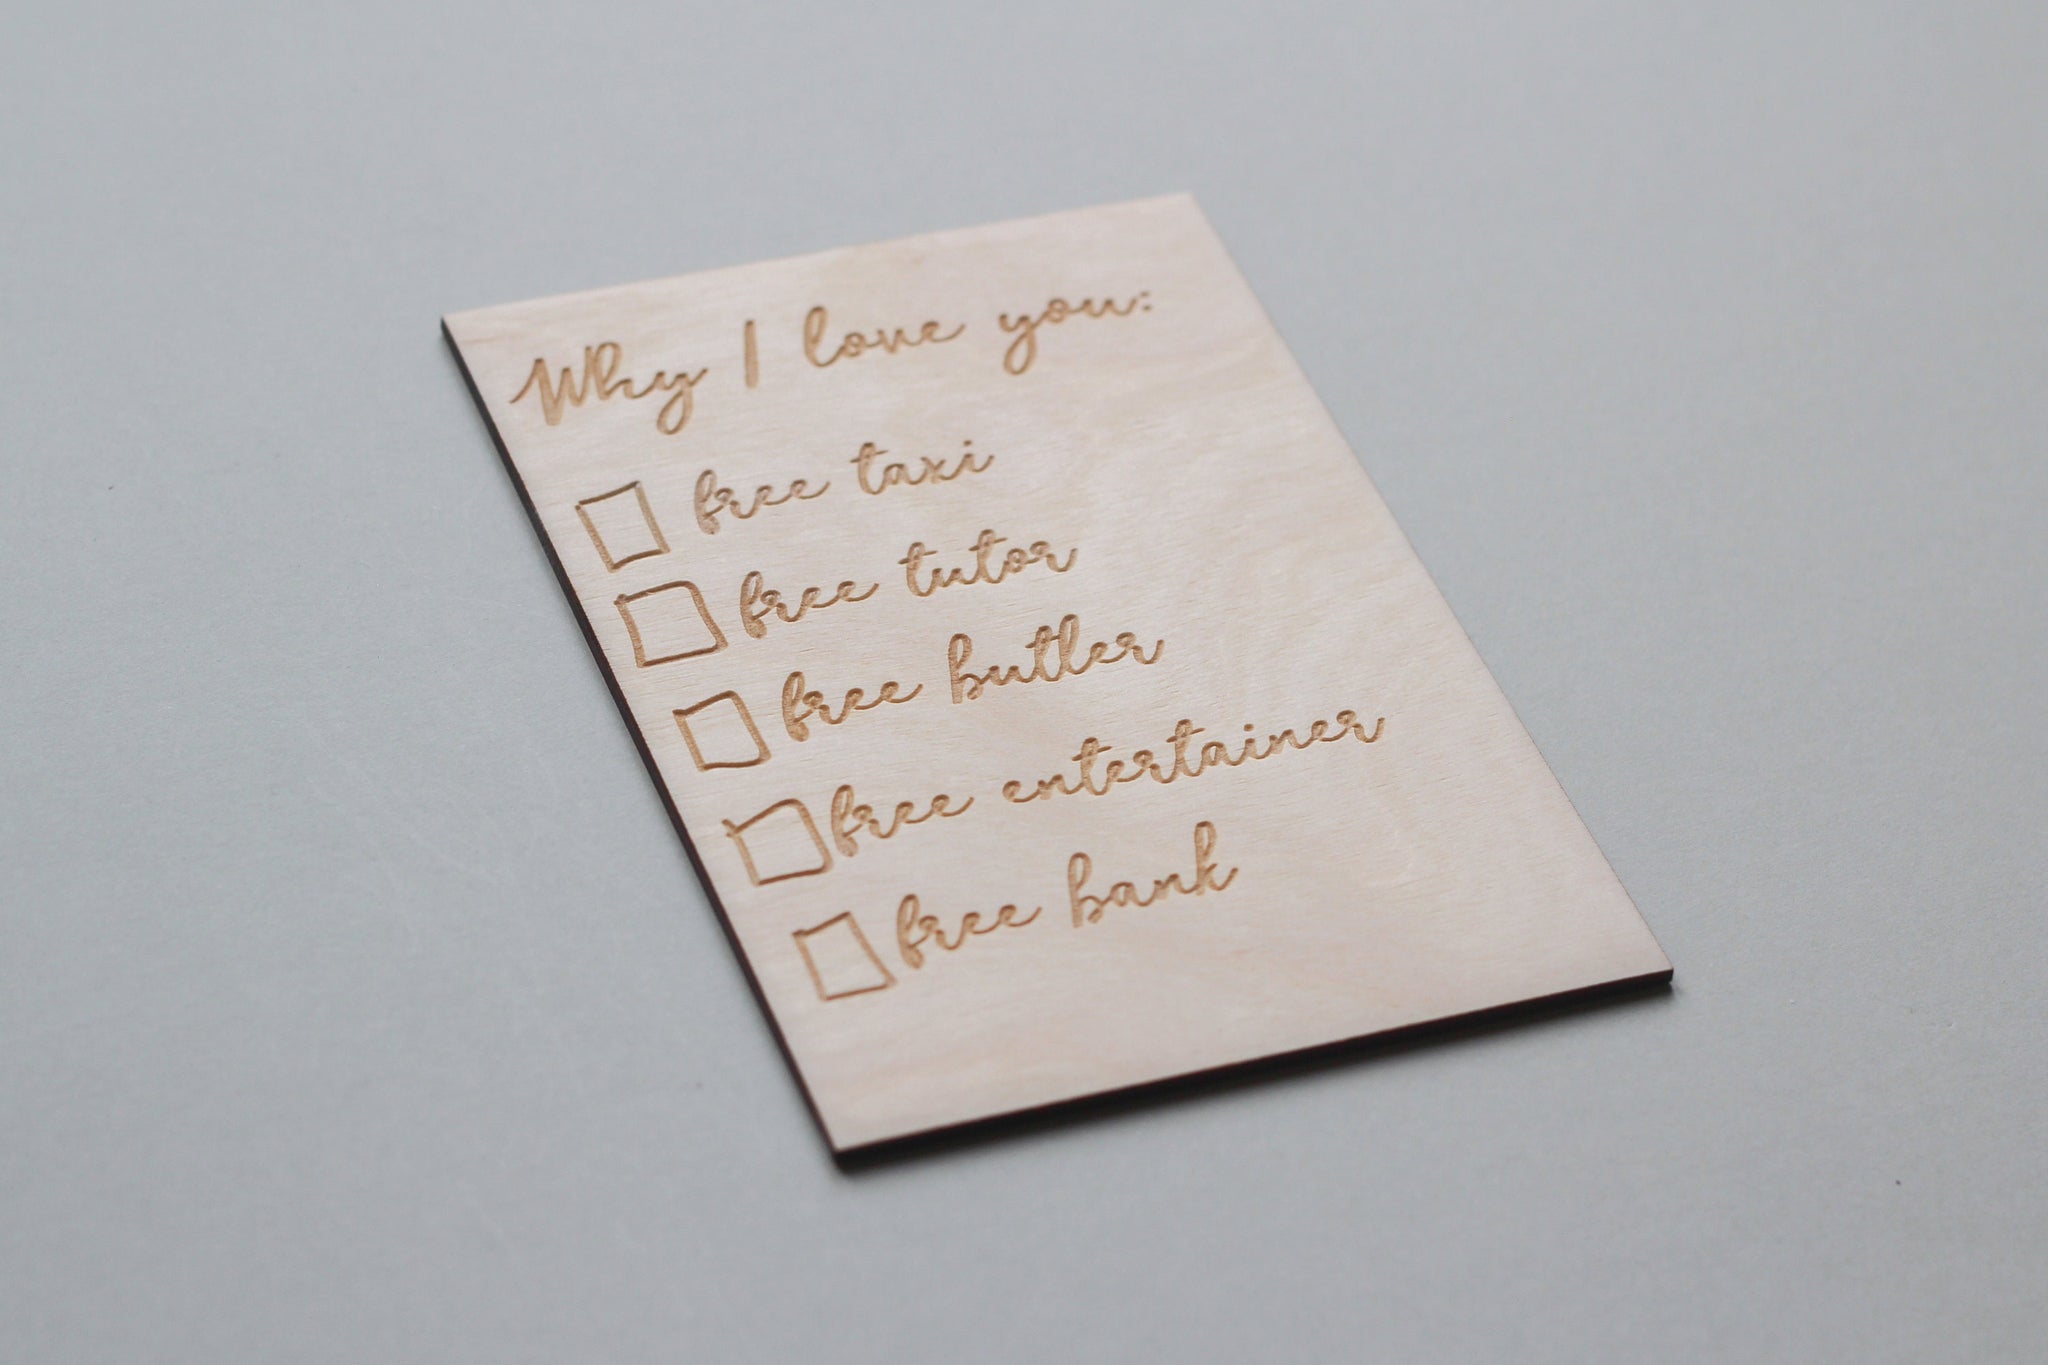 Why I love you:
free taxi
free tutor
free butler
free entertainer
free bank